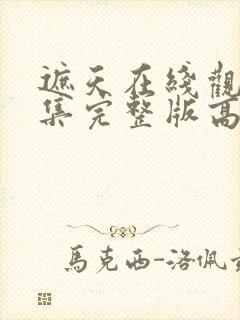 遮天在綫觀
集完整版高
馬克西-洛佩茲